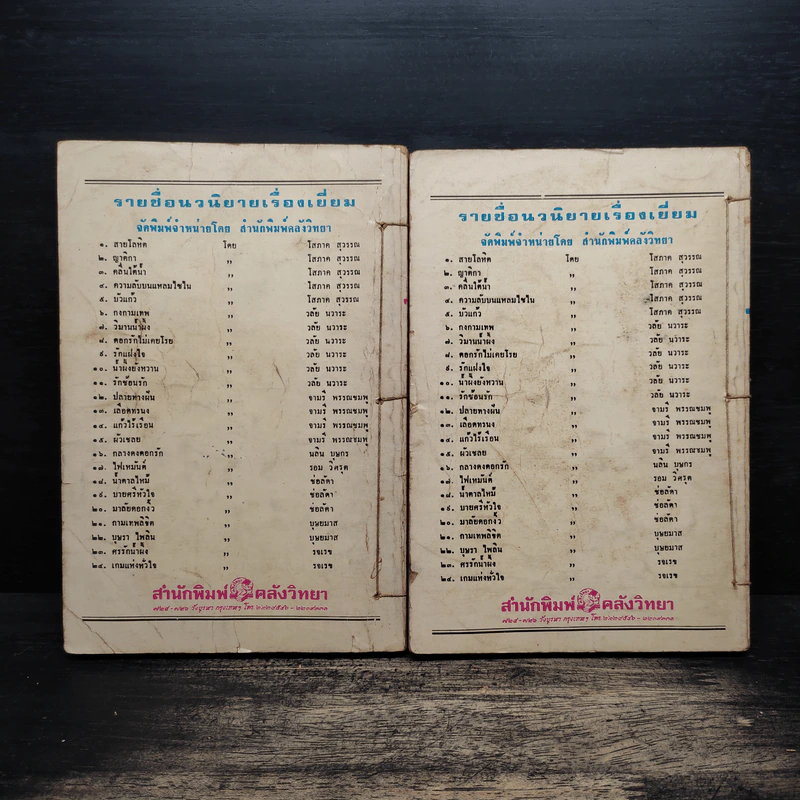 รายชื่อนวนิยายเรื่องเยี่ยม
จัดพิมพ์จำหน่ายโดย สำนักพิมพ์คลังวิทยา
๑. สายโลหิต โดย โสภาค สุวรรณ
๒. ญาติกา ,, โสภาค สุวรรณ
๓. คลื่นใต้น้ำ ,, โสภาค สุวรรณ
๔. ความลับบนแหลมไซไน ,, โสภาค สุวรรณ
๕. บัวแก้ว ,, โสภาค สุวรรณ
๖. กงกามเทพ ,, วลัย นวาระ
๗. วิมานน้ำผึ้ง ,, วลัย นวาระ
๘. ดอกรักไม่เคยโรย ,, วลัย นวาระ
๙. รักแฝงใจ ,, วลัย นวาระ
๑๐. น้ำผึ้งยังหวาน ,, วลัย นวาระ
๑๑. รักซ้อนรัก ,, วลัย นวาระ
๑๒. ปลายทางฝัน ,, จามรี พรรณชมพู
๑๓. เลือดทรนง ,, จามรี พรรณชมพู
๑๔. แก้วไร้เรือน ,, จามรี พรรณชมพู
๑๕. ผัวเชลย ,, จามรี พรรณชมพู
๑๖. กลางดงดอกรัก ,, นลิน บุษกร
๑๗. ไฟเหมันต์ ,, รอม วิศรุต
๑๘. น้ำตาลไหม้ ,, ช่อลัดา
๑๙. บายศรีหัวใจ ,, ช่อลัดา
๒๐. มาลัยดอกงิ้ว ,, ช่อลัดา
๒๑. กามเทพลิขิต ,, บุษยมาส
๒๒. บุษรา ไพลิน ,, บุษยมาส
๒๓. ศรรักน้ำผึ้ง ,, รจเรข
๒๔. เกมแห่งหัวใจ ,, รจเรข
สำนักพิมพ์ คลังวิทยา
๗๒๕-๗๒๖ วังบูรพา กรุงเทพฯ โทร
รายชื่อนวนิยายเรื่องเยี่ยม
จัดพิมพ์จำหน่ายโดย สำนักพิมพ์คลังวิทยา
๑. สายโลหิต โดย โสภาค สุวรรณ
๒. ญาติกา ,, โสภาค สุวรรณ
๓. คลื่นใต้น้ำ ,, โสภาค สุวรรณ
๔. ความลับบนแหลมไซไน ,, โสภาค สุวรรณ
๕. บัวแก้ว ,, โสภาค สุวรรณ
๖. กงกามเทพ ,, วลัย นวาระ
๗. วิมานน้ำผึ้ง ,, วลัย นวาระ
๘. ดอกรักไม่เคยโรย ,, วลัย นวาระ
๙. รักแฝงใจ ,, วลัย นวาระ
๑๐. น้ำผึ้งยังหวาน ,, วลัย นวาระ
๑๑. รักซ้อนรัก ,, วลัย นวาระ
๑๒. ปลายทางฝัน ,, จามรี พรรณชมพู
๑๓. เลือดทรนง ,, จามรี พรรณชมพู
๑๔. แก้วไร้เรือน ,, จามรี พรรณชมพู
๑๕. ผัวเชลย ,, จามรี พรรณชมพู
๑๖. กลางดงดอกรัก ,, นลิน บุษกร
๑๗. ไฟเหมันต์ ,, รอม วิศรุต
๑๘. น้ำตาลไหม้ ,, ช่อลัดา
๑๙. บายศรีหัวใจ ,, ช่อลัดา
๒๐. มาลัยดอกงิ้ว ,, ช่อลัดา
๒๑. กามเทพลิขิต ,, บุษยมาส
๒๒. บุษรา ไพลิน ,, บุษยมาส
๒๓. ศรรักน้ำผึ้ง ,, รจเรข
๒๔. เกมแห่งหัวใจ ,, รจเรข
สำนักพิมพ์ คลังวิทยา
๗๒๕-๗๒๖ วังบูรพา กรุงเทพฯ โทร